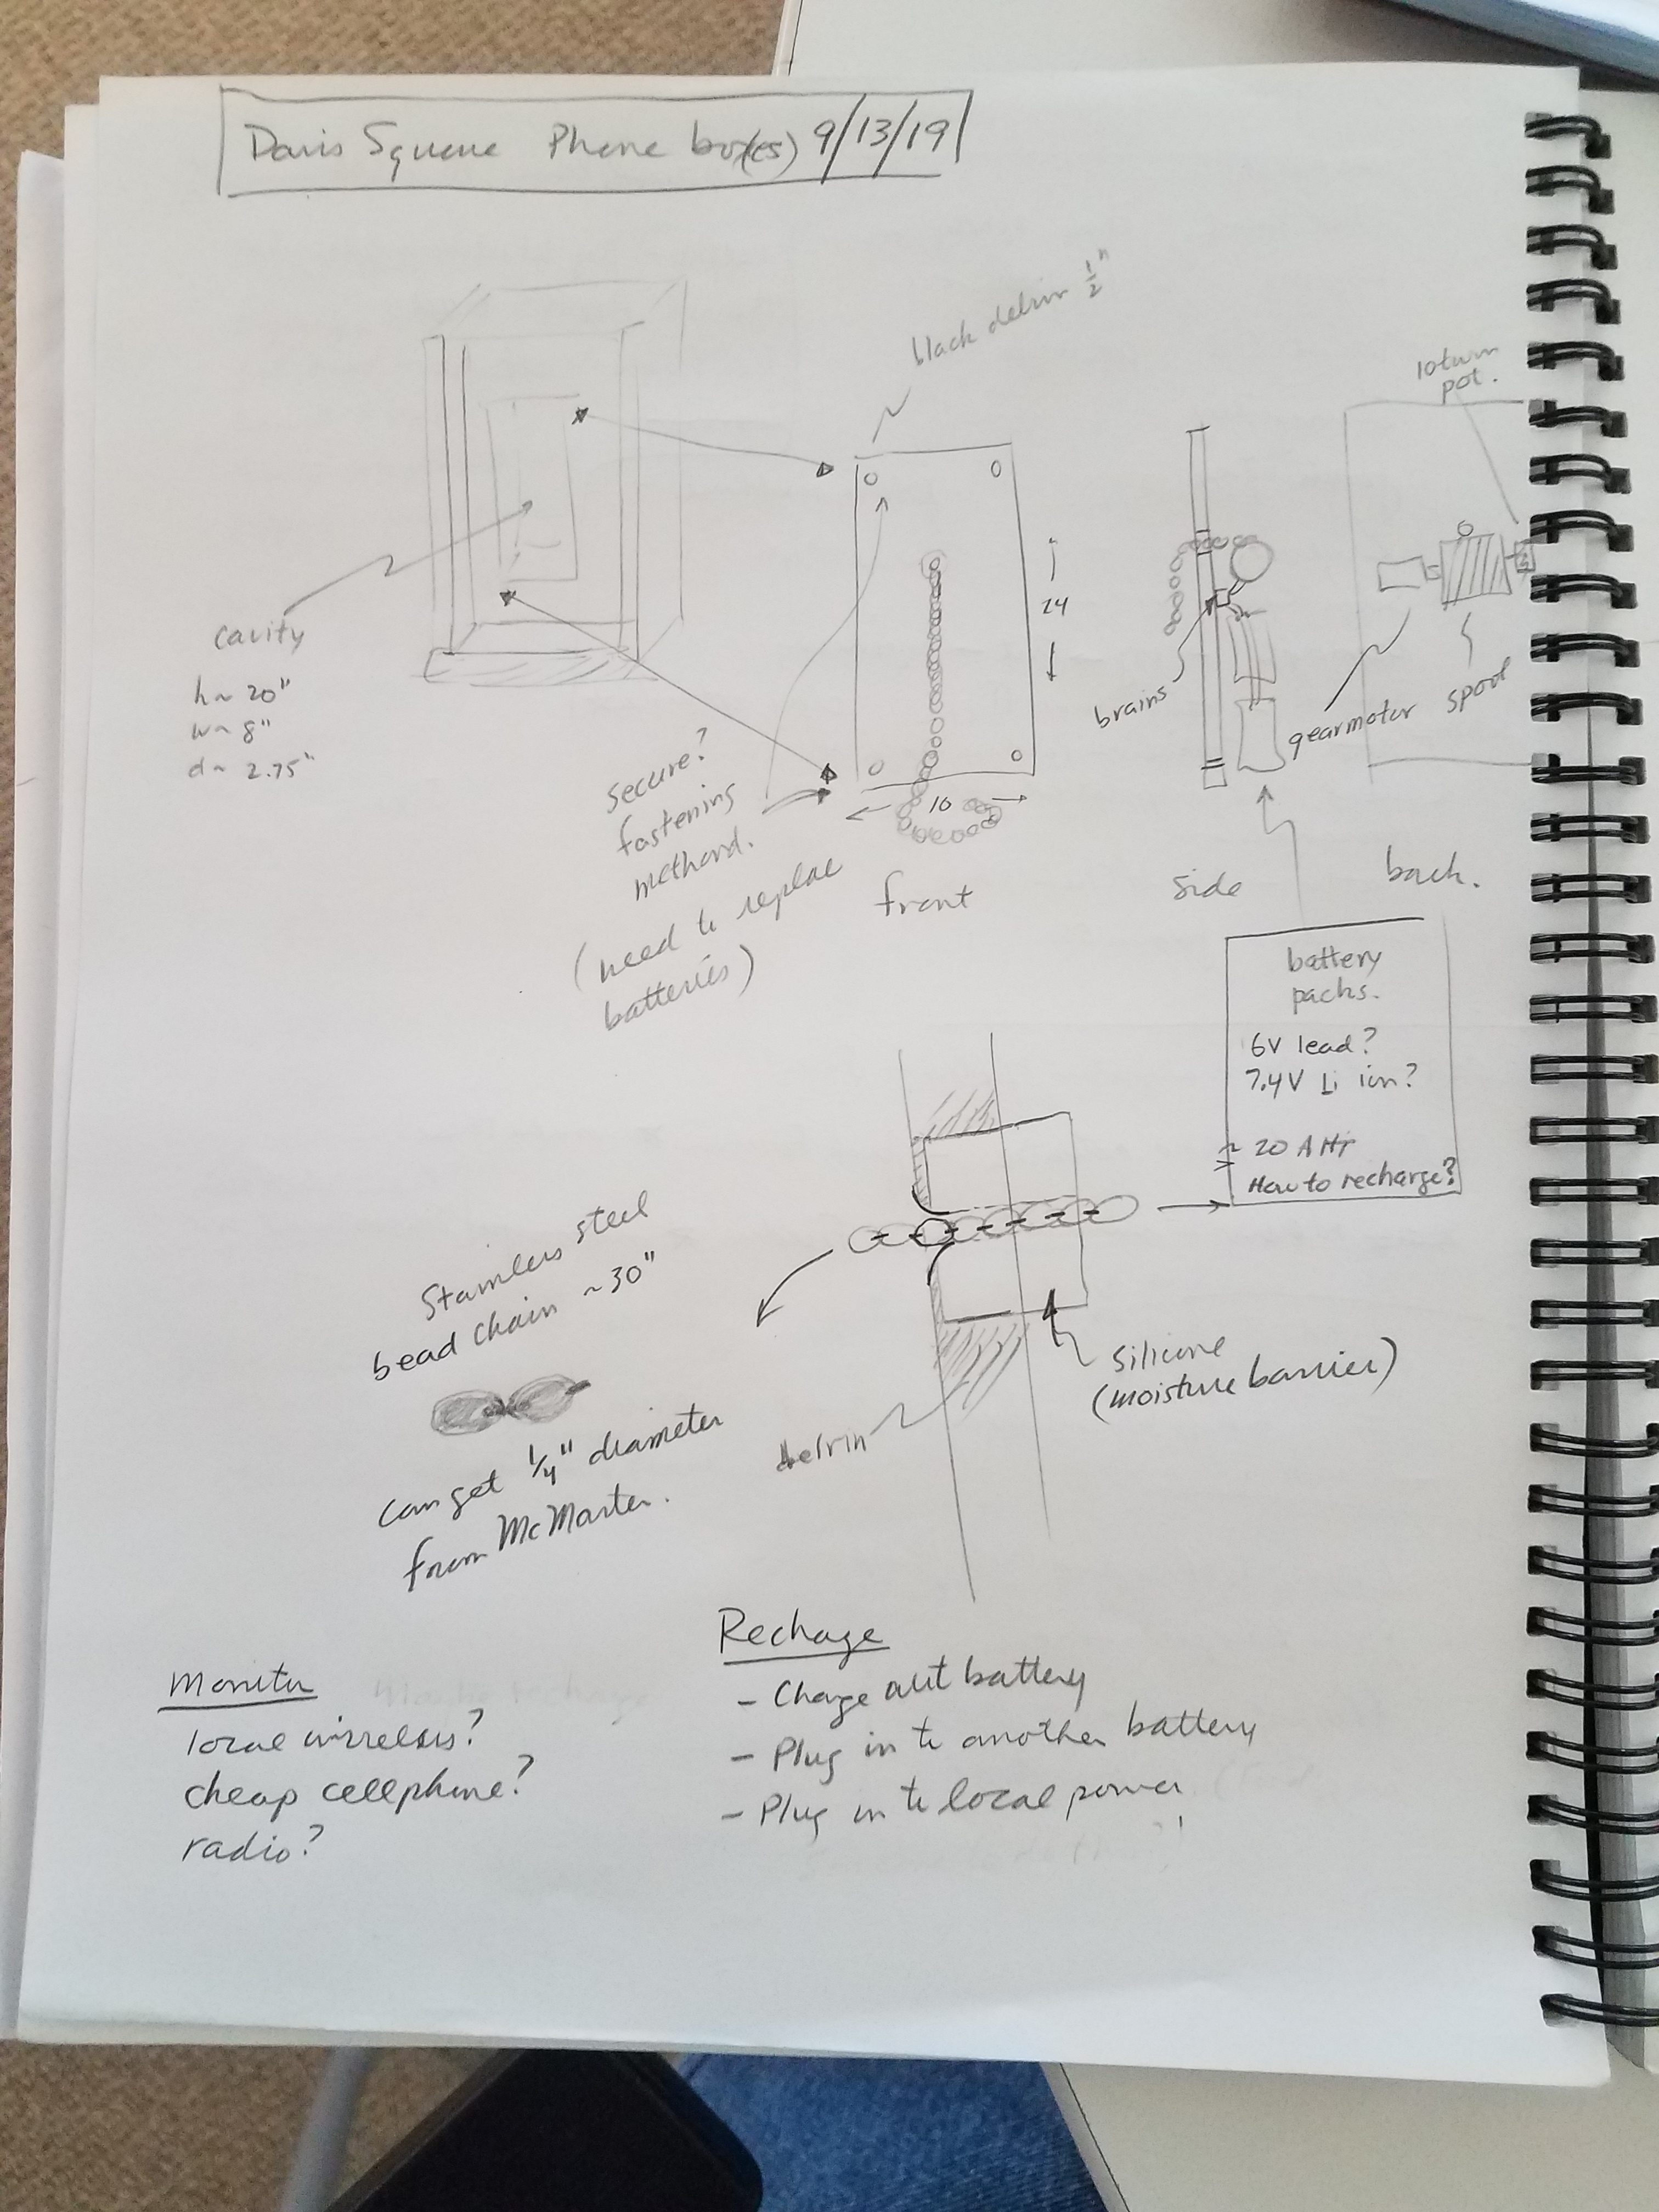 Davis Square Phone box(es) 9/13/19
black delrin 1/2"
10 turn
pot.
cavity
h ~ 20"
w ~ 8"
d ~ 2.75"
24
10
brains
gearmotor
spool
secure?
fastening
method.
(need to replace
batteries)
front
side
back.
battery
packs.
6V lead?
7.4V Li ion?
~ 20 AHr
How to recharge?
Stainless steel
bead chain ~30"
can get 1/4" diameter
from McMaster.
silicone
(moisture barrier)
delrin
Monitor
local wireless?
cheap cellphone?
radio?
Rechage
- Charge battery
- Plug in to another battery
- Plug in to local power